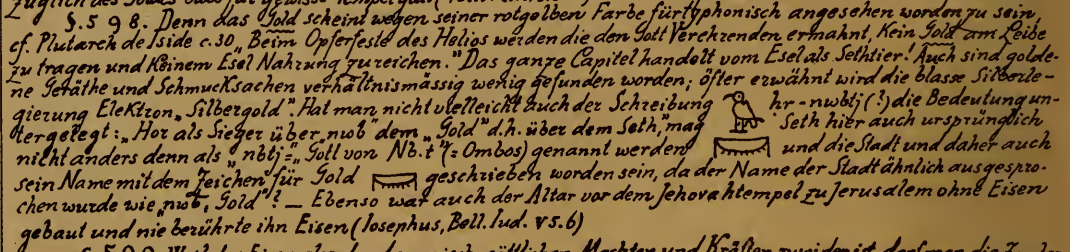 §. 598. Denn das Gold scheint wegen seiner rotgelben Farbe für typhonisch angesehen worden zu sein,
cf. Plutarch de Iside c. 30 „Beim Opferfeste des Helios werden die den Gott Verehrenden ermahnt, Kein Gold am Leibe
zu tragen und Keinem Esel Nahrung zu reichen." Das ganze Capitel handelt vom Esel als Sethtier! Auch sind golde-
ne Geräthe und Schmucksachen verhältnismässig wenig gefunden worden; öfter erwähnt wird die blasse Silberle-
gierung Elektron „Silbergold". Hat man nicht vielleicht auch der Schreibung hr-nwbtj (?) die Bedeutung un-
tergelegt: „Hor als Sieger über „nwb" dem „Gold" d.h. über dem Seth," mag Seth hier auch ursprünglich
nicht anders denn als „nbtj = „Gott von Nb.t" (= Ombos) genannt werden und die Stadt und daher auch
sein Name mit dem Zeichen für Gold geschrieben worden sein, da der Name der Stadt ähnlich ausgespro-
chen wurde wie „nwb, Gold"? — Ebenso war auch der Altar vor dem Jehovahtempel zu Jerusalem ohne Eisen
gebaut und nie berührte ihn Eisen (Josephus, Bell. Iud. V 5. 6)